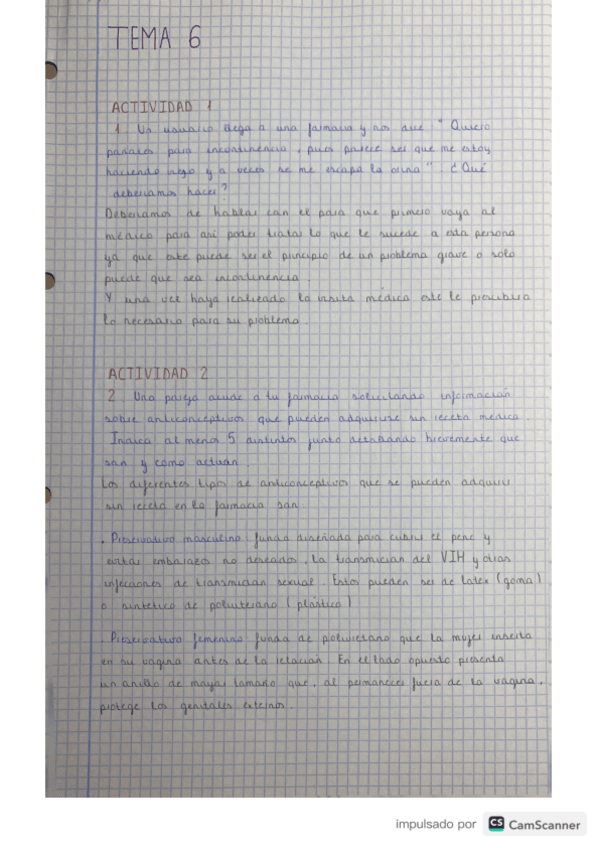 TEMA 6
ACTIVIDAD 1
1. Un usuario llega a una farmacia y nos dice: " Quiero
pañales para incontinencia, pues parece ser que me estoy
haciendo viejo y a veces se me escapa la orina " ¿ Qué
deberíamos hacer ?
Deberíamos de hablar con el para que primero vaya al
médico para así poder tratar lo que le sucede a esta persona
ya que este puede ser el principio de un problema grave o solo
puede que sea incontinencia.
Y una vez haya realizado la visita médica este le prescribirá
lo necesario para su problema.
ACTIVIDAD 2
2. Una pareja acude a tu farmacia solicitando información
sobre anticonceptivos que pueden adquirirse sin receta médica.
Indica al menos 5 distintos junto detallando brevemente que
son y como actúan.
Los diferentes tipos de anticonceptivos que se pueden adquirir
sin receta en la farmacia son:
. Preservativo masculino: funda diseñada para cubrir el pene y
evitar embarazos no deseados, la transmicion del VIH y otras
infecciones de transmicion sexual. Estos pueden ser de latex (goma)
o sintético de poliuretano ( plástico )
. Preservativo femenino: funda de poliuretano que la mujer inserta
en su vagina antes de la relación. En el lado opuesto presenta
un anillo de mayor tamaño que, al permanecer fuera de la vagina,
protege los genitales externos.
impulsado por CS CamScanner